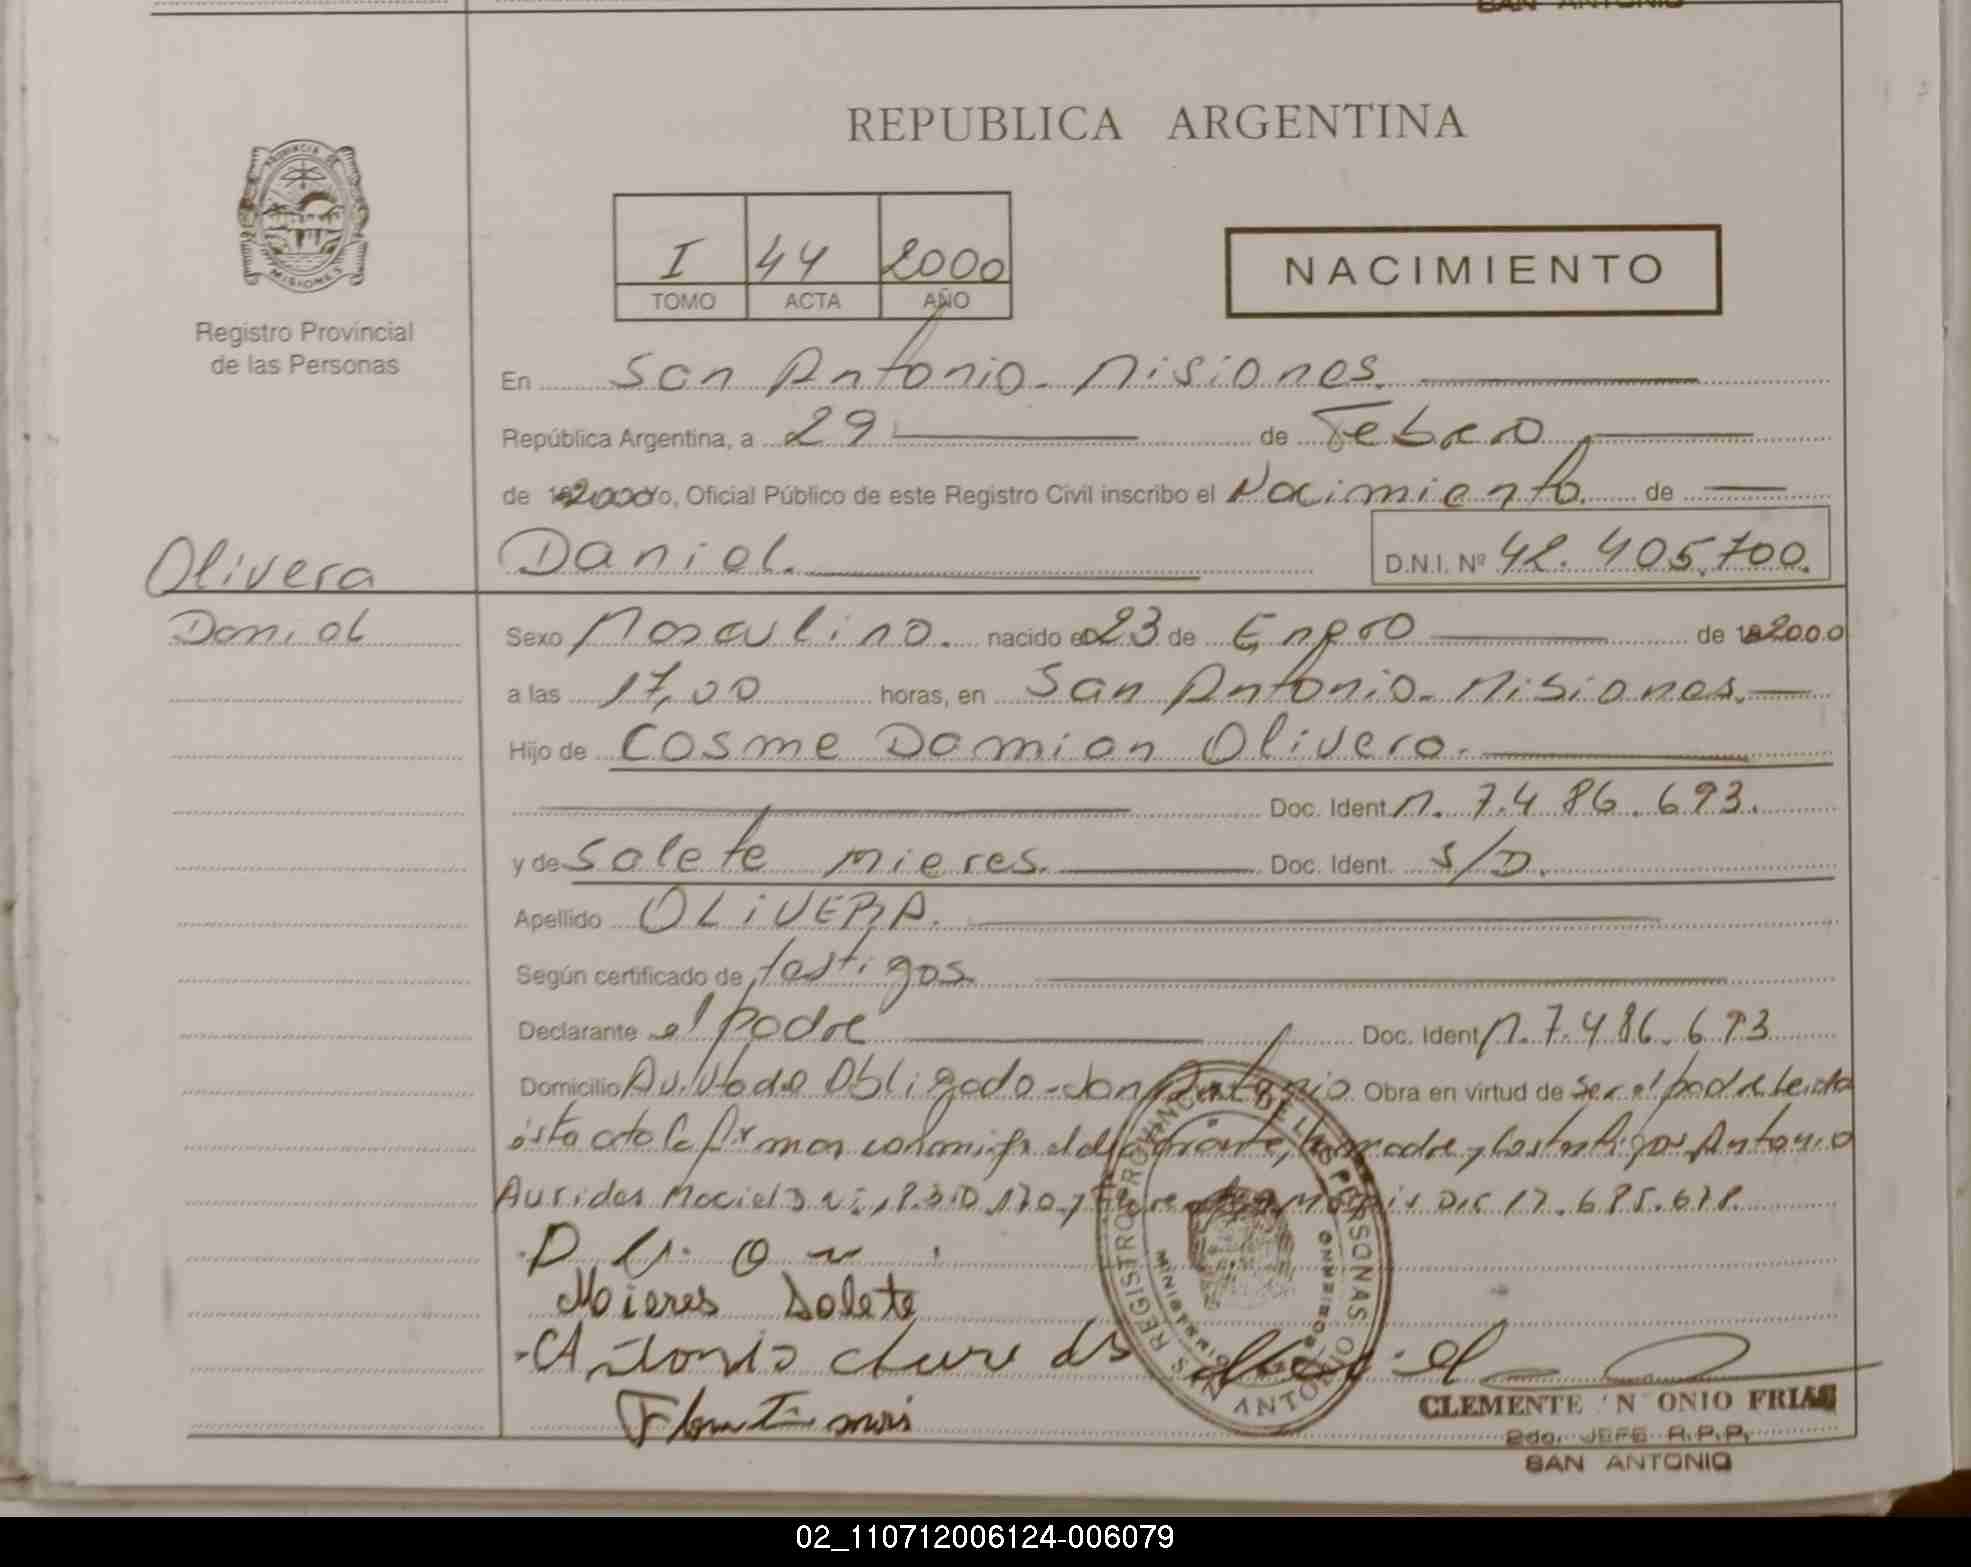 SAN ANTONIO
REPUBLICA ARGENTINA
PROVINCIA DE
MISIONES
Registro Provincial
de las Personas
I 44 2000
TOMO ACTA AÑO
NACIMIENTO
En San Antonio - Misiones.
República Argentina, a 29 de Febrero
de 2000 yo, Oficial Público de este Registro Civil inscribo el Nacimiento. de
Olivera
Daniel. D.N.I. Nº 42.405.700.
Daniel
Sexo Masculino. nacido el 23 de Enero de 2000
a las 17,00 horas, en San Antonio - Misiones.
Hijo de Cosme Damian Olivera.
Doc. Ident. n. 7.486.693.
y de Salete Mieres. Doc. Ident. S/D.
Apellido OLIVERA.
Según certificado de testigos
Declarante el padre Doc. Ident. n. 7.486.693
Domicilio Obligado - San Antonio. Obra en virtud de ser el padre Leida
ésta acta la firman conmigo el declarante, la madre y los testigos Antonio
Auridas Maciel 17.685.678.
Moieres Salete
CLEMENTE 'N ONIO FRIAS
2do. JEFE R.P.P.
SAN ANTONIO
02_110712006124-006079